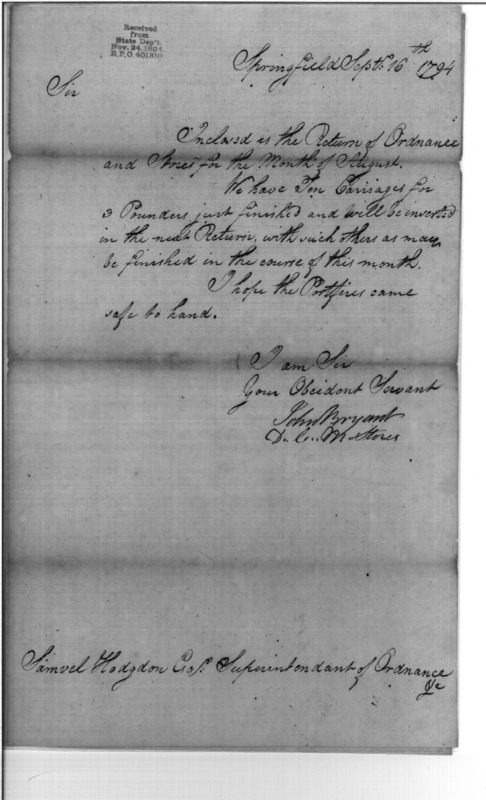 Received
from
State Dep't.
Nov. 24, 1894.
R.P.O. 401810
Springfield Sept. 16th 1794
Sir
Inclosed is the Return of Ordnance
and Stores for the Month of August.
We have Ten Carriages for
3 Pounders just finished and will be inserted
in the next Return, with such others as may
be finished in the course of this month.
I hope the Portfires came
safe to hand.
I am Sir
Your Obeident Servant
John Bryant
D. C. M Stores
Samuel Hodgdon Esqr. Superintendant of Ordnance
&c